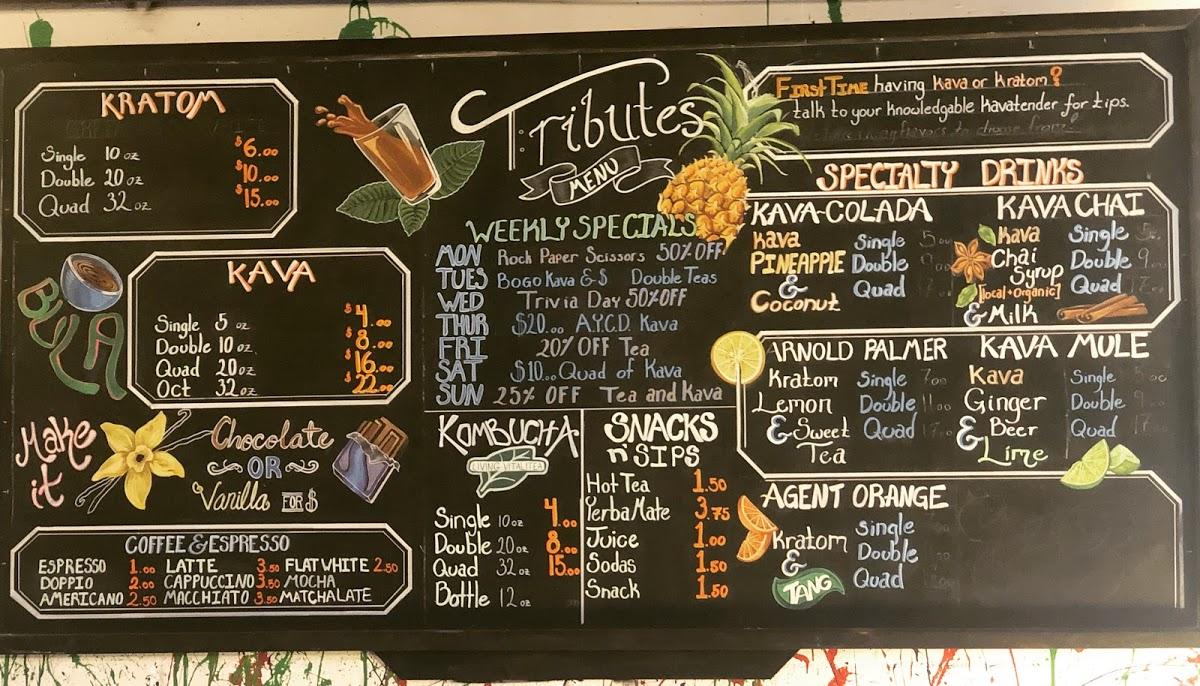 KRATOM
Single 10 oz $6.00
Double 20 oz $10.00
Quad 32 oz $15.00
BULA
KAVA
Single 5 oz $4.00
Double 10 oz. $8.00
Quad 20 oz $16.00
Oct 32 oz $22.00
Make it
Chocolate
OR
Vanilla FOR $
COFFEE & ESPRESSO
ESPRESSO 1.00 LATTE 3.50 FLAT WHITE 2.50
DOPPIO 2.00 CAPPUCCINO 3.50 MOCHA
AMERICANO 2.50 MACCHIATO 3.50 MATCHALATE
Tributes
MENU
WEEKLY SPECIALS
MON Rock Paper Scissors 50% OFF
TUES Bogo Kava & $ Double Teas
WED Trivia Day 50% OFF
THUR $20.00 A.Y.C.D. Kava
FRI 20% OFF Tea
SAT $10.00 Quad of Kava
SUN 25% OFF Tea and Kava
KOMBUCHA
LIVING VITALITEA
Single 10 oz 4.00
Double 20 oz 8.00
Quad 32 oz 15.00
Bottle 12 oz
SNACKS
n SIPS
Hot Tea 1.50
Yerba Mate 3.75
Juice 1.00
Sodas 1.50
Snack 1.50
FIRST TIME having kava or kratom?
talk to your knowledgable Kavatender for tips.
SPECIALTY DRINKS
KAVA-COLADA
Kava Single
PINEAPPLE Double
& Quad
Coconut
KAVA CHAI
Kava Single
Chai Double
Syrup Quad
[local + Organic]
& Milk
ARNOLD PALMER
Kratom Single
Lemon Double
& Sweet Quad
Tea
KAVA MULE
Kava Single
Ginger Double
& Beer Quad
Lime
AGENT ORANGE
Kratom Single
& Double
TANG Quad